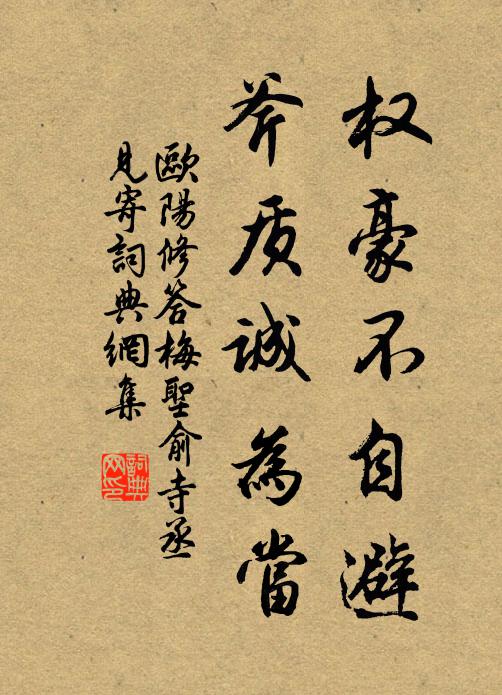 权豪不自避
斧质诚為當
歐陽修答梅聖俞寺丞
見寄詞典網集
詞典
网印